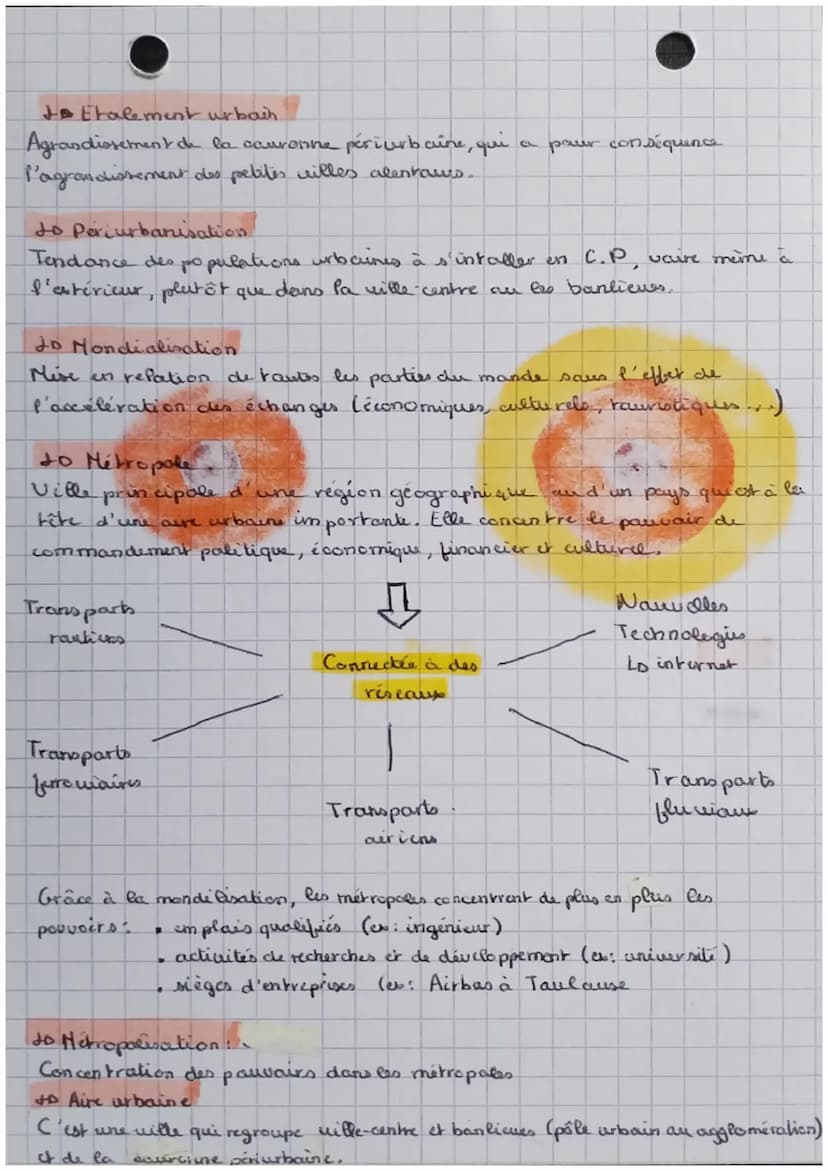 ↳ Etalement urbain
Agrandissement de la couronne périurbaine, qui a pour conséquence
l'agrandissement des petites villes alentours.
↳ Périurbanisation
Tendance des populations urbaines à s'intaller en C.P, voire même à
l'extérieur, plutôt que dans la ville-centre ou les banlieues.
↳ Mondialisation
Mise en relation de toutes les parties du monde sous l'effet de
l'accélération des échanges (économiques, culturels, touristiques...)
↳ Métropole
Ville principale d'une région géographique ou d'un pays qui est à la
tête d'une aire urbaine importante. Elle concentre le pouvoir de
commandement politique, économique, financier et culturel.
Transports
routiers
Nouvelles
Technologies
↳ internet
Connectée à des
réseaux
Transports
ferroviaires
Transports
aériens
Transports
fluviaux
Grâce à la mondialisation, les métropoles concentrent de plus en plus les
pouvoirs : • emplois qualifiés (ex : ingénieur)
• activités de recherches et de développement (ex : université)
• sièges d'entreprises (ex : Airbus à Toulouse
↳ Métropolisation :
Concentration des pouvoirs dans les métropoles
↳ Aire urbaine
C'est une ville qui regroupe ville-centre et banlieues (pôle urbain ou agglomération)
et de la couronne périurbaine.